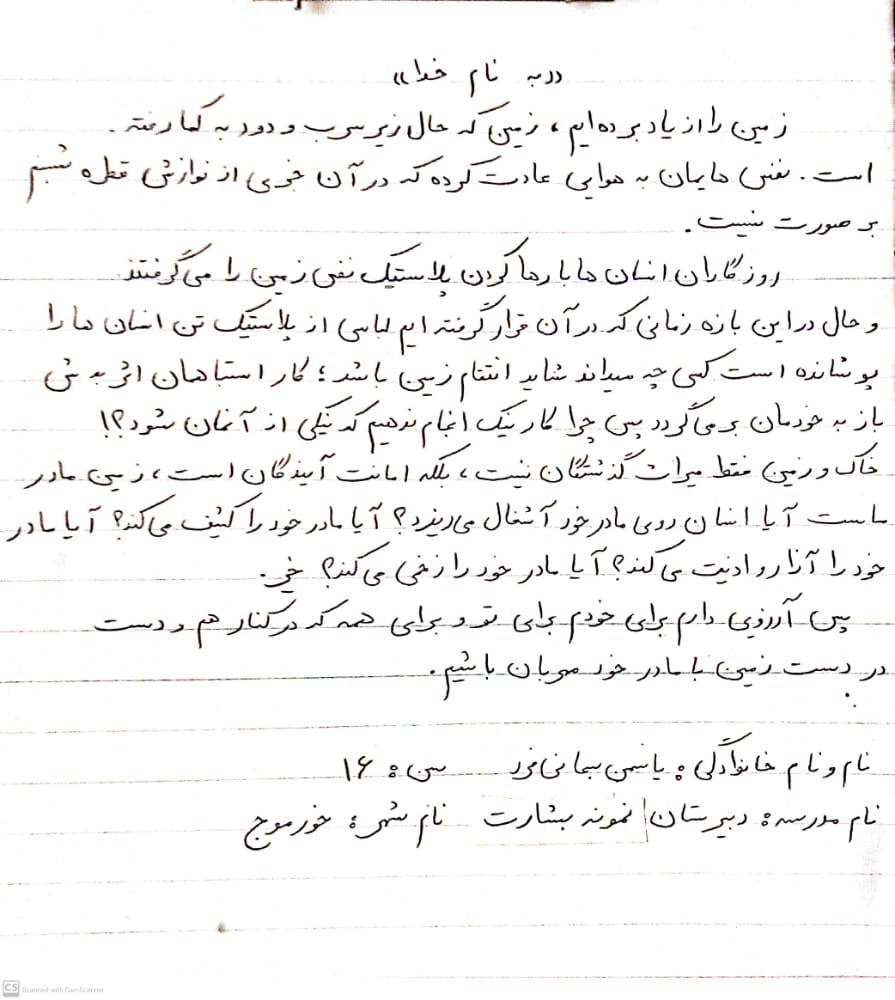 «به نام خدا»
زمین را از یاد برده ایم، زمین که حال زیر سرب و دود به کما رفته.
است. نفس هایمان به هوایی عادت کرده که در آن خبری از نوازش قطره شبنم
بر صورت نیست.
روزگاران انسان ها با رها کردن پلاستیک نفس زمین را می‌گرفتند
و حال در این بازه زمانی که در آن قرار گرفته ایم لباسی از پلاستیک تن انسان ها را
پوشانده است کسی چه میداند شاید انتقام زمین باشد؛ کار استباهان اثر به ش
باز به خودمان بر می‌گردد پس چرا کار نیک انجام ندهیم که نیکی از آنمان شود؟!
خاک و زمین فقط میراث گذشتگان نیست، بلکه امانت آیندگان است، زمین مادر
ماست آیا انسان روی مادر خود آشغال می‌ریزد؟ آیا مادر خود را کثیف می‌کند؟ آیا مادر
خود را آزار و اذیت می‌کند؟ آیا مادر خود را زخمی می‌کند؟ خیر.
پس آرزویی دارم برای خودم برای تو و برای همه که در کنار هم و دست
در دست زمین با مادر خود مهربان باشیم.
نام و نام خانوادگی: یاسمن سیمانی فرد سن: ۱۶
نام مدرسه: دبیرستان نمونه بشارت نام شهر: خورموج
CS Scanned with CamScanner